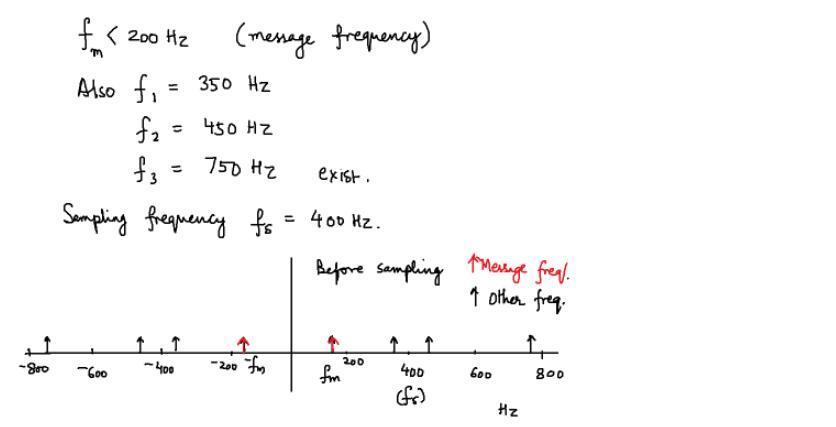 fm < 200 Hz (message frequency)
Also f1 = 350 Hz
f2 = 450 Hz
f3 = 750 Hz exist.
Sampling frequency fs = 400 Hz.
Before sampling ↑Message freq.
↑ Other freq.
-800 -600 -400 -200 -fm fm 200 400 600 800
(fs)
Hz